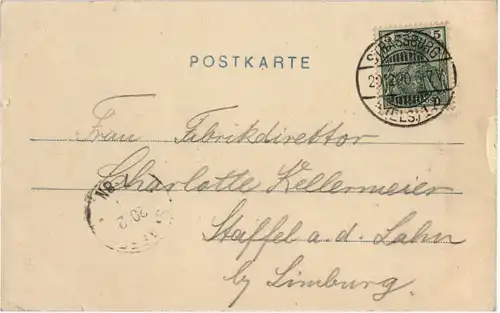 POSTKARTE
5
STRASSBURG
(ELS.)
Frau Fabrikdirektor
Charlotte Kellermeier
Staffel a. d. Lahn
by Limburg.
8N
20 2